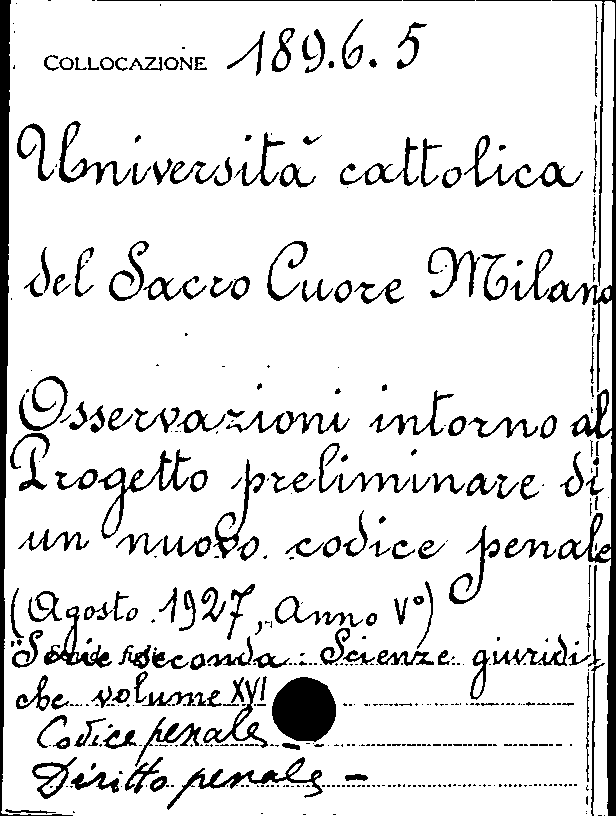 COLLOCAZIONE 189.6.5
Università cattolica
del Sacro Cuore Milano
Osservazioni intorno al
Progetto preliminare di
un nuovo codice penale
(Agosto 1927, Anno V°)
"Serie seconda: Scienze giuridi-
che volume XVI
Codice penale -
Diritto penale -